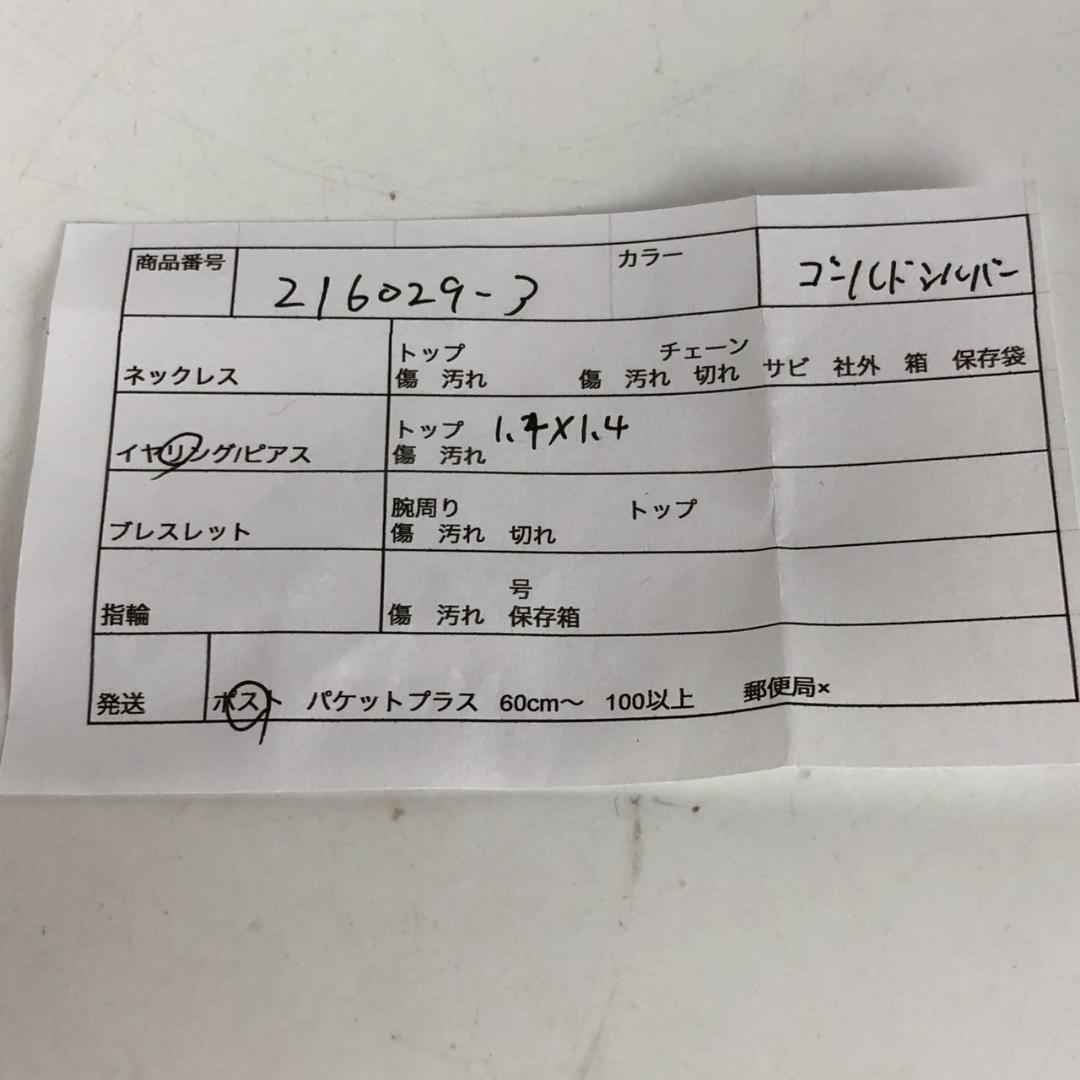 商品番号 216029-3 カラー ゴールドシルバー
トップ チェーン
ネックレス 傷 汚れ 傷 汚れ 切れ サビ 社外 箱 保存袋
トップ 1.4×1.4
イヤリング/ピアス 傷 汚れ
腕周り トップ
ブレスレット 傷 汚れ 切れ
号
指輪 傷 汚れ 保存箱
発送 ポスト パケットプラス 60cm〜 100以上 郵便局×